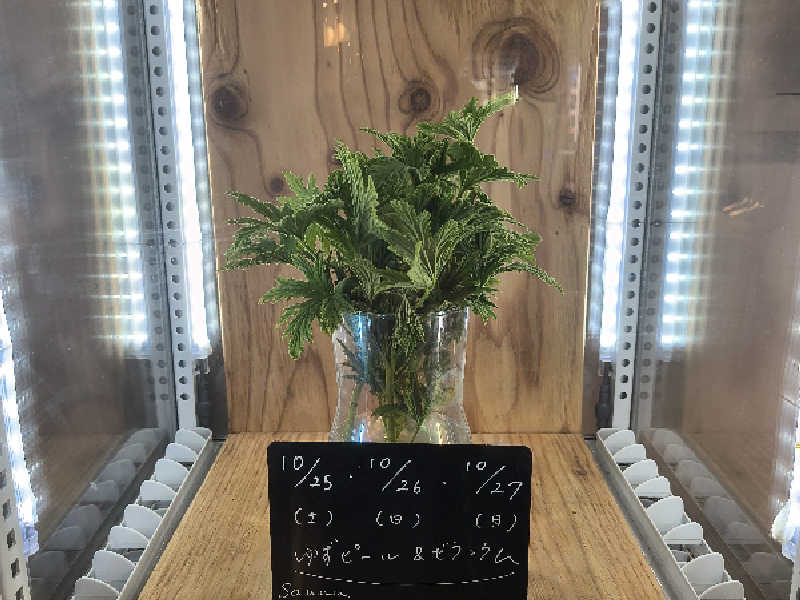 10/25 . 10/26 . 10/27
(土) (日) (月)
ゆずピール & ゼラニウム
Sauna